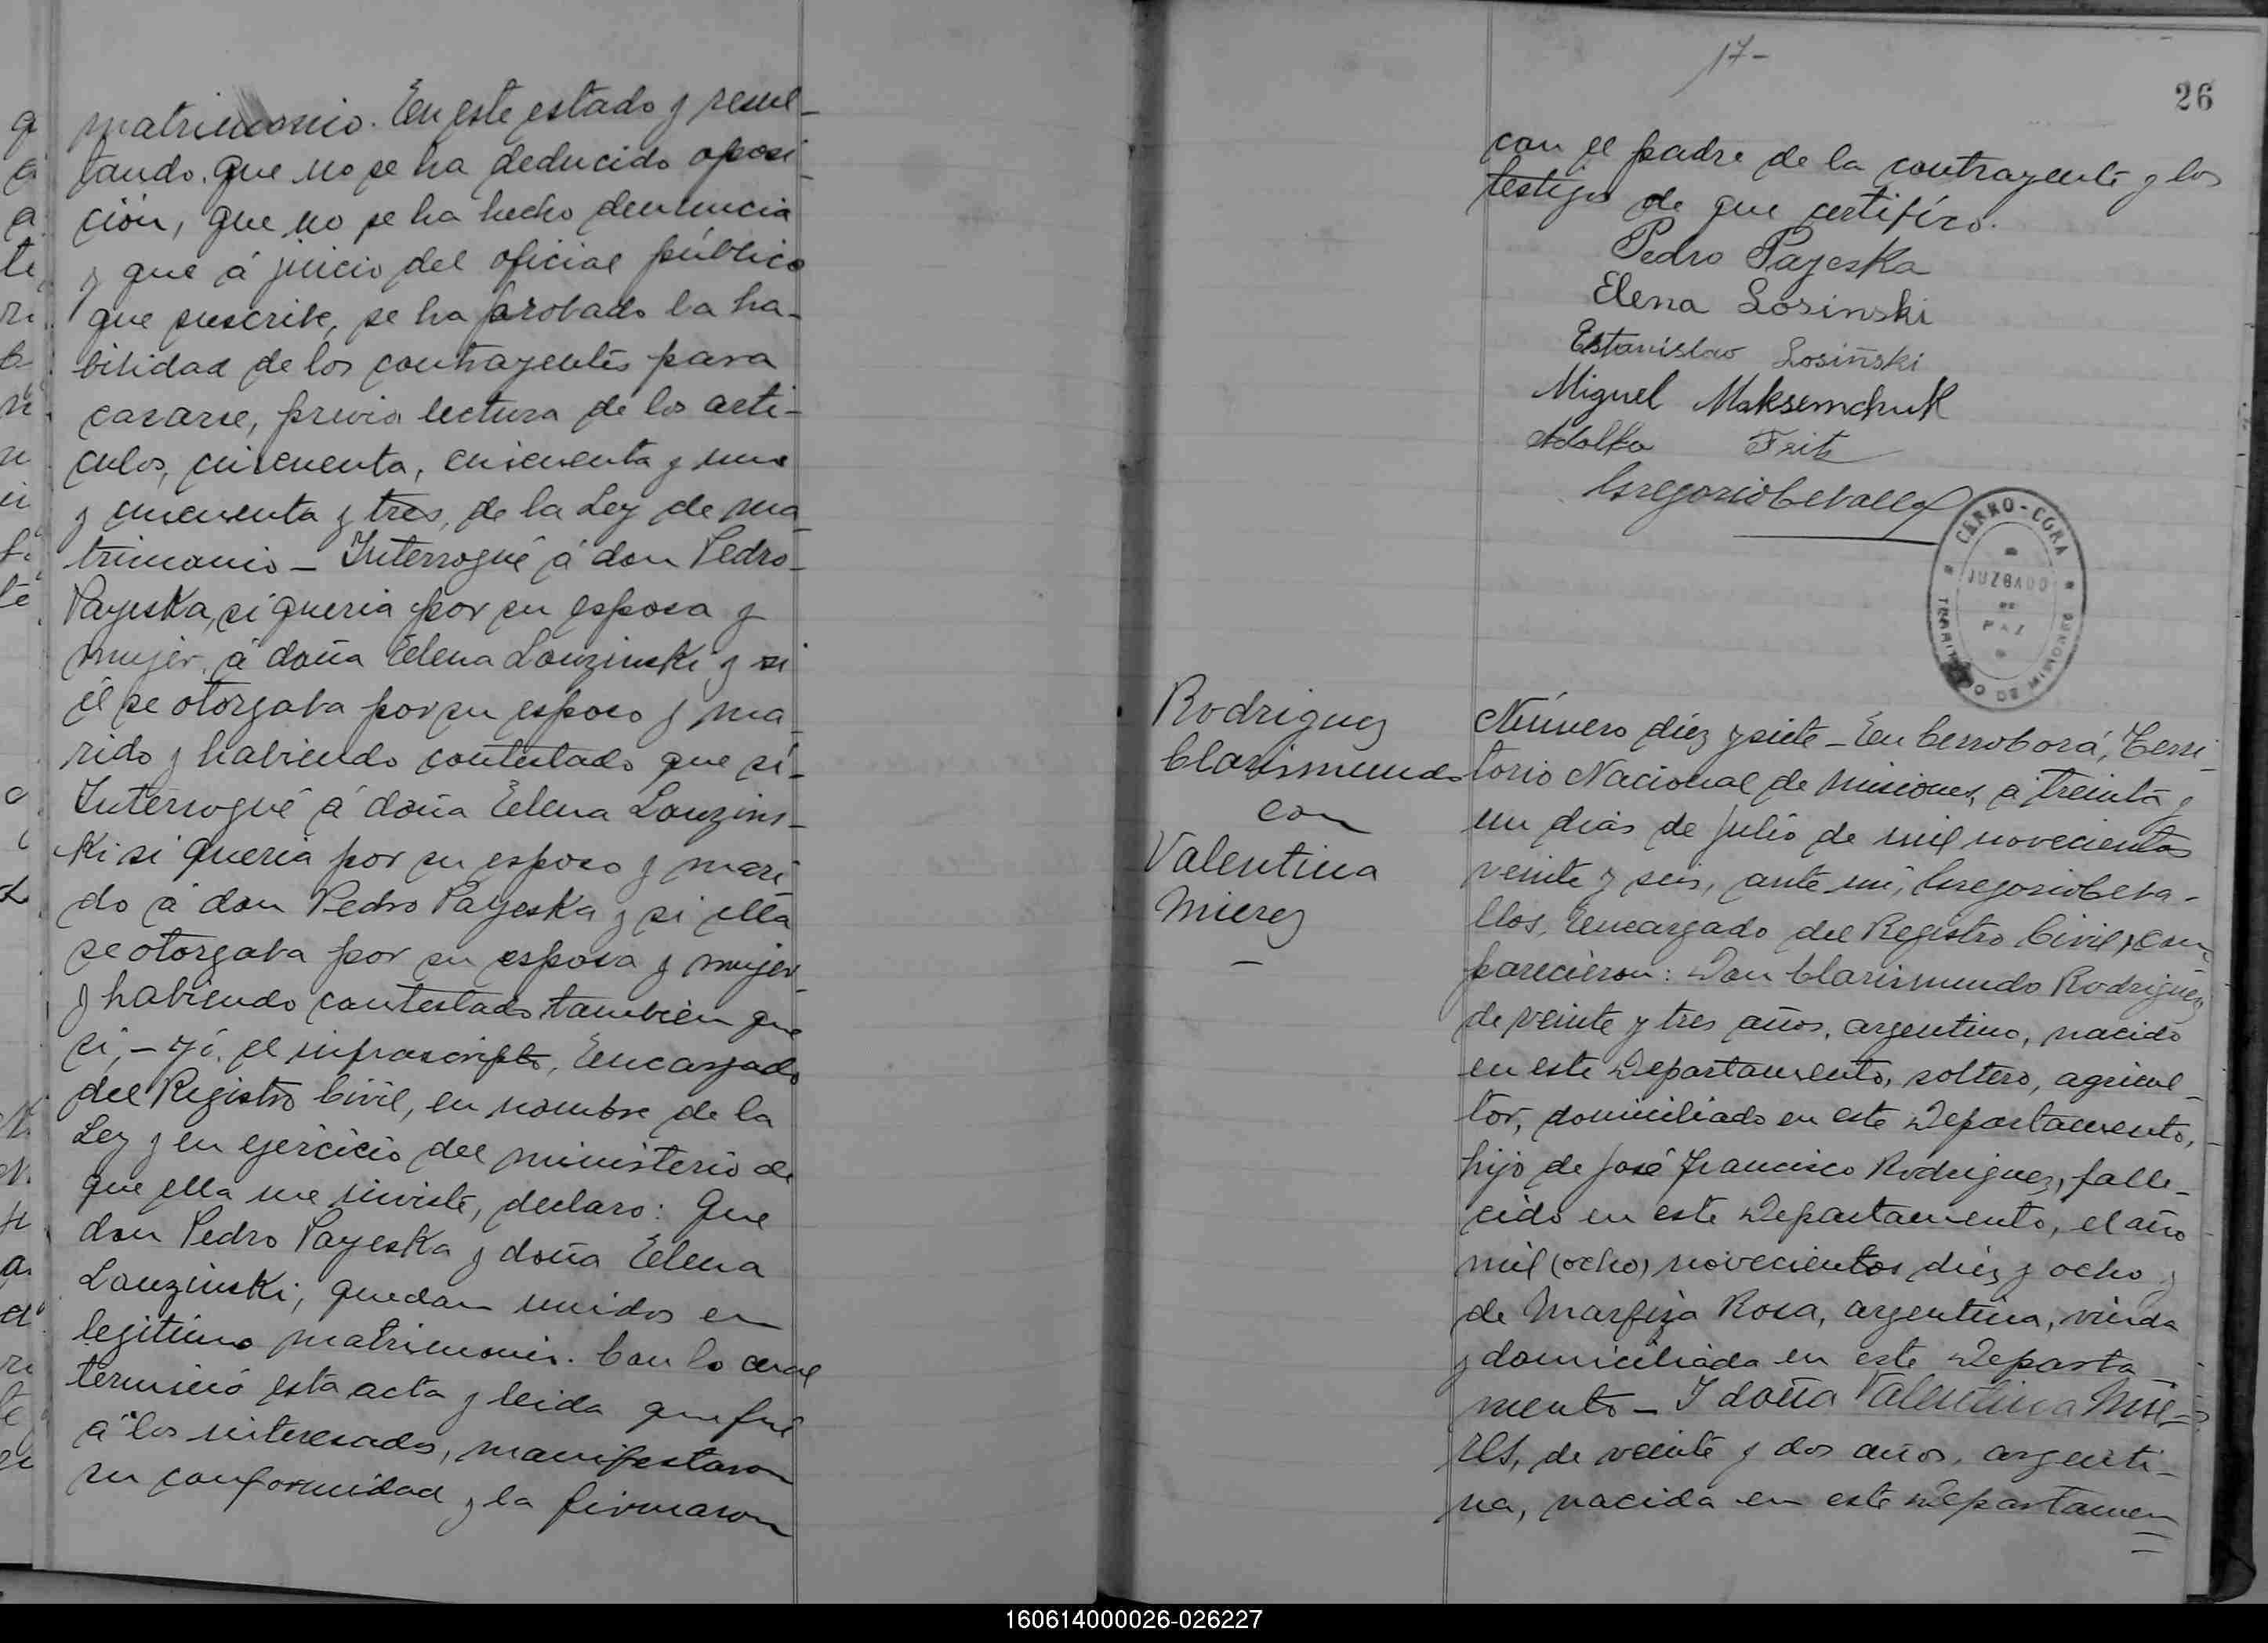 matrimonio. En este estado y resul-
tando que no se ha deducido oposi-
ción, que no se ha hecho denuncia
y que á juicio del oficial público
que suscribe, se ha probado la ha-
bilidad de los contrayentes para
casarse, previa lectura de los arti-
culos, cincuenta, cincuenta y uno
y cincuenta y tres, de la Ley de ma-
trimonio - Interrogué á don Pedro
Payeska, si queria por su esposa y
mujer, á doña Elena Louzinski y si
él se otorgaba por su esposo y ma-
rido y habiendo contestado que sí-
Interrogué á doña Elena Louzins-
ki si queria por su esposo y mari-
do á don Pedro Payeska y si ella
se otorgaba por su esposa y mujer
y habiendo contestado tambien que
sí, - yó, el infrascripto, Encargado
del Registro Civil, en nombre de la
Ley y en ejercicio del ministerio de
que ella me inviste, declaro: Que
don Pedro Payeska y doña Elena
Louzinski, quedan unidos en
legitimo matrimonio. Con lo cual
terminó esta acta y leida que fué
á los interesados, manifestaron
su conformidad y la firmaron
17-
26
con el padre de la contrayente y los
testigos de que certifíco.
Pedro Payeska
Elena Losinski
Estanislao Losiñski
Miguel Maksemchuk
Adolfo Fritz
Gregorio Cevallos
CERRO-CORA
JUZGADO
DE
PAZ
TERRITORIO DE MISIONES
Rodriguez
Clarismundo
con
Valentina
Mierez
Número diéz y siete - En Cerro Corá, Terri-
torio Nacional de Misiones, á treinta y
un dias de Julio de mil novecientos
veinte y seis, ante mí, Gregorio Ceva-
llos, Encargado del Registro Civil, com-
parecieron: Don Clarismundo Rodriguez
de veinte y tres años, argentino, nacido
en este Departamento, soltero, agricul-
tor, domiciliado en este Departamento,
hijo de José Francisco Rodriguez, falle-
cido en este Departamento, el año
mil (ocho) novecientos diéz y ocho y
de Marfiza Rosa, argentina, viuda
y domiciliada en este Departa-
mento - I doña Valentina Mie-
res, de veinte y dos años, argenti-
na, nacida en este Departamen
160614000026-026227